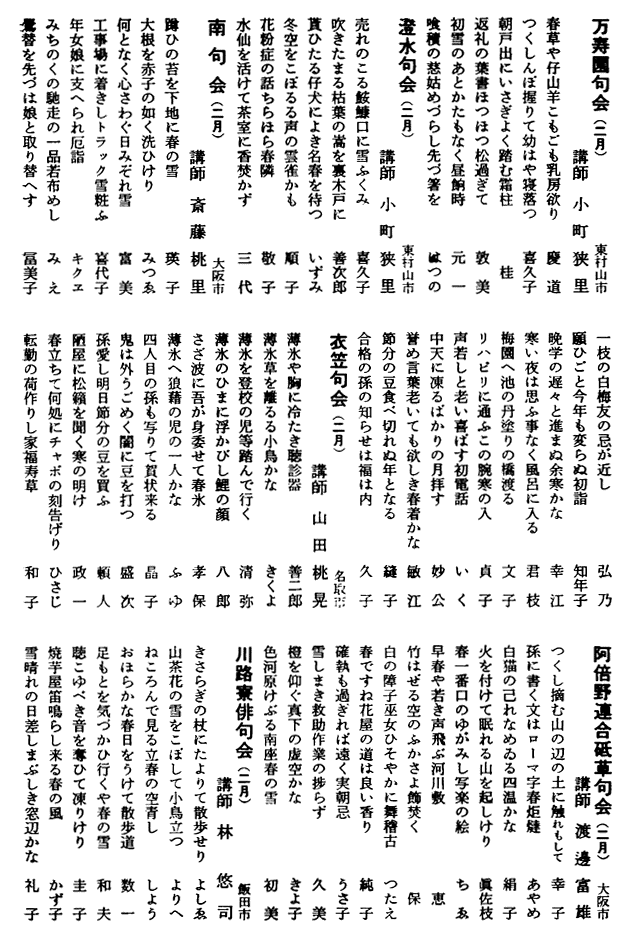 万寿園句会（二月）
東村山市
講師 小町 狭里
春草や仔山羊こもごも乳房欲り 慶道
つくしんぼ握りて幼はや寝落つ 喜久子
朝戸出にいさぎよく踏む霜柱 桂
返礼の葉書ほつほつ松過ぎて 敦美
初雪のあとかたもなく昼餉時 元一
喰積の慈姑めづらし先づ箸を はつの
澄水句会（二月）
東村山市
講師 小町 狭里
売れのこる鮟鱇口に雪ふくみ 喜久子
吹きたまる枯葉の嵩を裏木戸に 善次郎
貰ひたる仔犬によき名春を待つ いずみ
冬空をこぼるる声の雲雀かも 順子
花粉症の話ちらほら春隣 敬子
水仙を活けて茶室に香焚かず 三代
南句会（二月）
大阪市
講師 斎藤 桃里
蹲ひの苔を下地に春の雪 瑛子
大根を赤子の如く洗ひけり みつゑ
何となく心さわぐ日みぞれ雪 富美
工事場に着きしトラック雪粧ふ 喜代子
年女娘に支へられ厄詣 キクヱ
みちのくの馳走の一品若布めし みえ
鷽替を先づは娘と取り替へす 冨美子
一枝の白梅友の忌が近し 弘乃
願ひごと今年も変らぬ初詣 知年子
晩学の遅々と進まぬ余寒かな 幸江
寒い夜は思ふ事なく風呂に入る 君枝
梅園へ池の丹塗りの橋渡る 文子
リハビリに通ふこの腕寒の入 貞子
声若しと老い喜ばす初電話 いく
中天に凍るばかりの月拝す 妙公
誉め言葉老いても欲しき春着かな 敏江
節分の豆食べ切れぬ年となる 縫子
合格の孫の知らせは福は内 久子
衣笠句会（二月）
名取市
講師 山田 桃晃
薄氷や胸に冷たき聴診器 善二郎
薄氷草を離るる小鳥かな きくよ
薄氷を登校の児等踏んで行く 清弥
薄氷のひまに浮かびし鯉の顔 八郎
さざ波に吾が身委せて春氷 孝保
薄氷へ狼藉の児の一人かな ふゆ
四人目の孫も写りて賀状来る 晶子
鬼は外うごめく闇に豆を打つ 盛次
孫愛し明日節分の豆を買ふ 頼人
陋屋に松籟を聞く寒の明け 政一
春立ちて何処にチャボの刻告げり ひさじ
転勤の荷作りし家福寿草 和子
阿倍野連合砥草句会（二月）
大阪市
講師 渡邊 富雄
つくし摘む山の辺の土に触れもして 幸子
孫に書く文はローマ字春炬燵 あやめ
白猫の己れなめゐる四温かな 絹子
火を付けて眠れる山を起しけり 眞佐枝
春一番口のゆがみし写楽の絵 ちゑ
早春や若き声飛ぶ河川敷 恵
竹はぜる空のふかさよ飾焚く 保
白の障子巫女ひそやかに舞稽古 つたえ
春ですね花屋の道は良い香り 純子
確執も過ぎれば遠く実朝忌 うさ子
雪しまき救助作業の捗らず 久美
橙を仰ぐ真下の虚空かな きよ子
色河原けぶる南座春の雪 初美
川路寮俳句会（二月）
飯田市
講師 林 悠司
きさらぎの杖にたよりて散歩せり よしゑ
山茶花の雪をこぼして小鳥立つ よりへ
ねころんで見る立春の空青し しょう
おほらかな春日をうけて散歩道 数一
足もとを気づかひ行くや春の雪 和夫
聴こゆべき音を奪ひて凍りけり 圭子
焼芋屋笛鳴らし来る春の風 かず子
雪晴れの日差しまぶしき窓辺かな 礼子